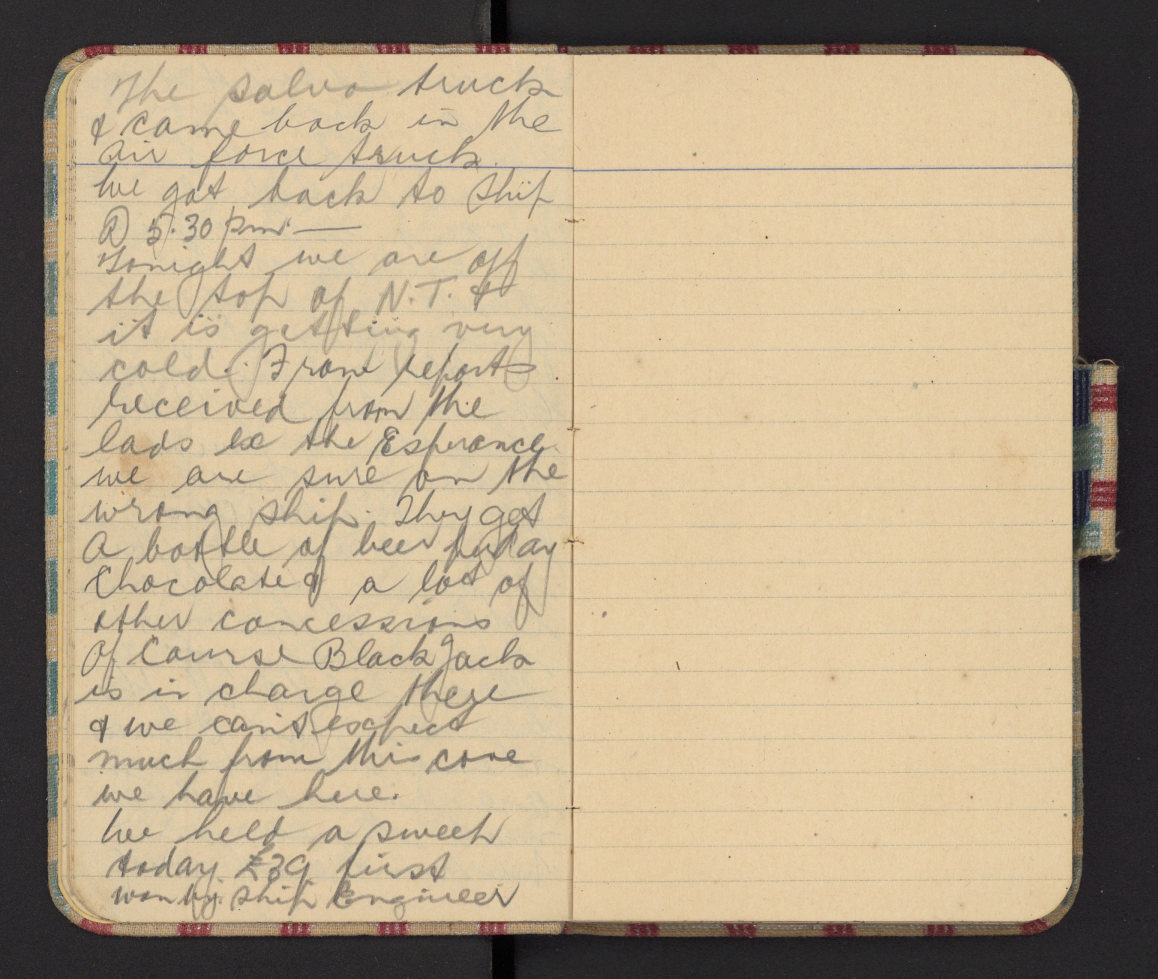 The salvo truck
& came back in the
air force truck.
We got back to Ship
@ 5.30 pm. —
Tonight we are off
the top of N.T. &
it is getting very
cold. From reports
received from the
lads ex the Esperance
we are sure on the
wrong ship. They get
A bottle of beer per day
Chocolate & a lot of
other concessions
Of Course Black Jack
is in charge there
& we can't expect
much from this cove
we have here.
We held a sweep
today £39 first
won by Ship Engineer